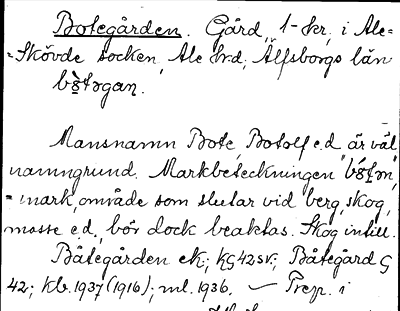 Botegården. Gård, 1-kr, i Ale=
=Skövde socken, Ale hrd; Älfsborgs län
bo̖tægan.
Mansnamn Bote, Botolf e.d. är väl
namngrund. Markbeteckningen "
=mark, område som slutar vid berg, skog,
mosse e.d., bör dock beaktas. Skog intill.
Båtegården ek; KG42sv; Båtegård G
42; kb. 1937 (1916); ml. 1936. — Prep. i